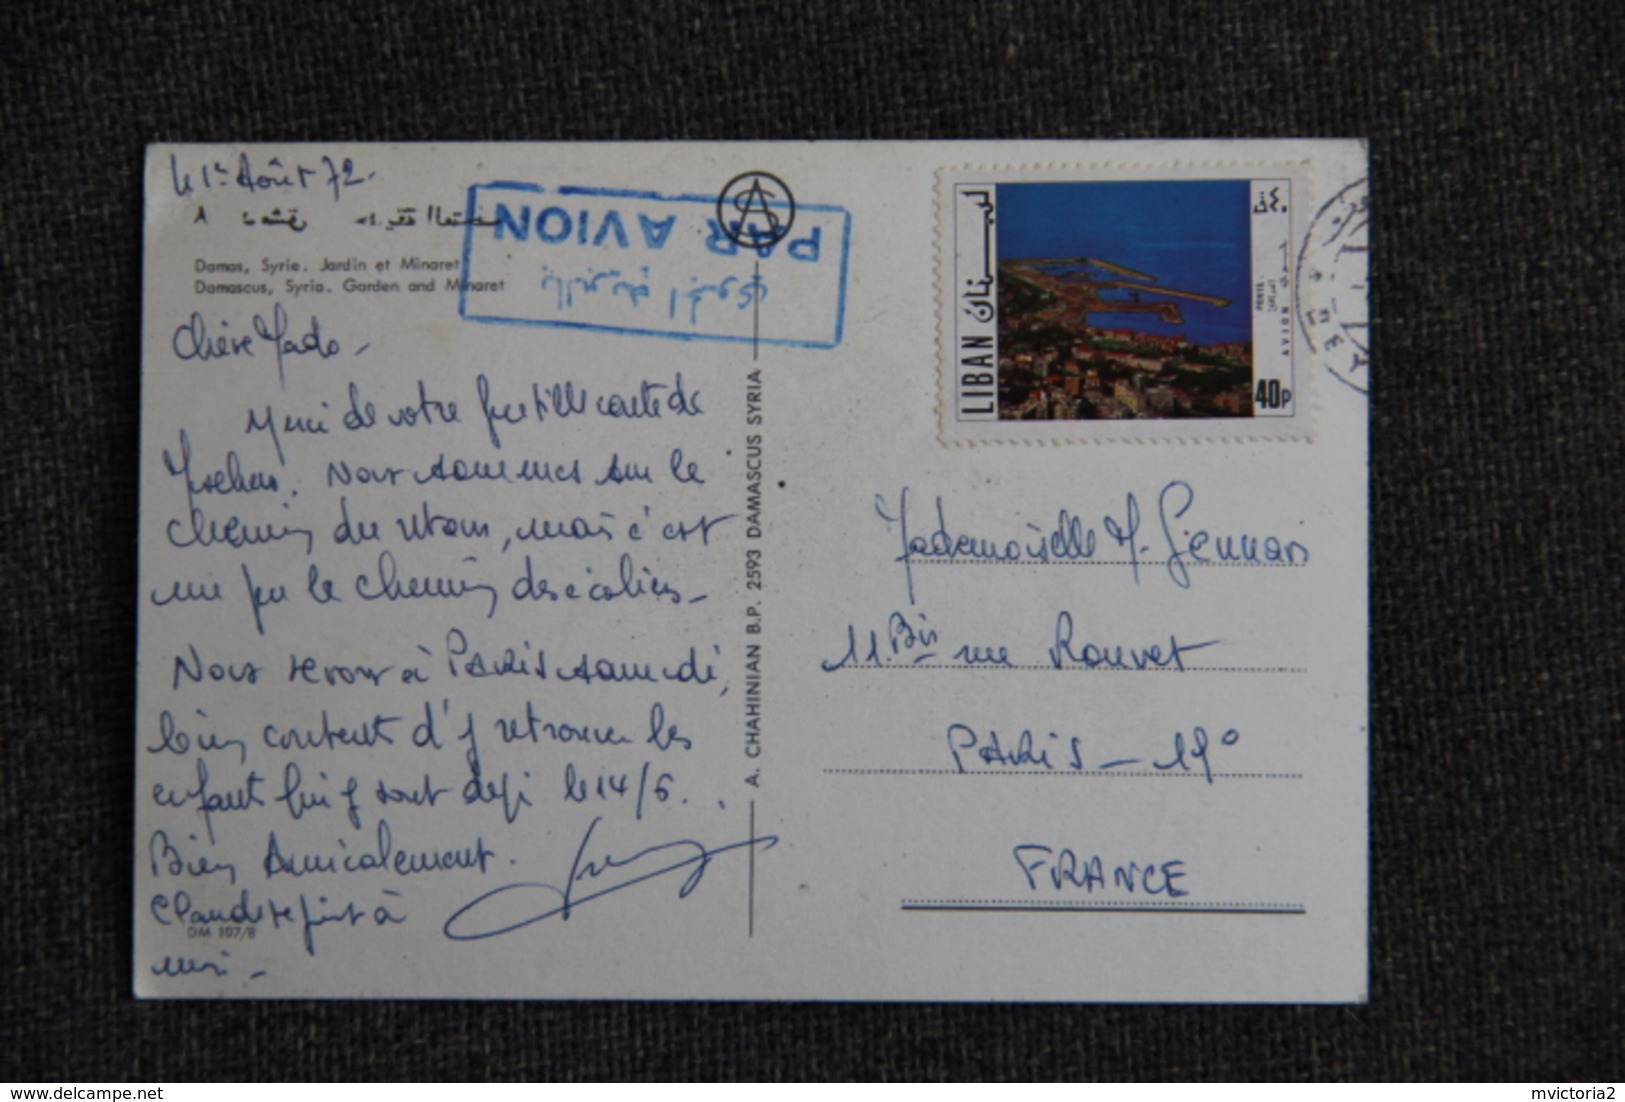 le 1er Août 72.
٨ دمشق حديقة
Damas, Syrie. Jardin et Minaret
Damascus, Syria. Garden and Minaret
Chère Mado -
Merci de votre gentille carte de
Nous sommes sur le
chemin du retour, mais c'est
un peu le chemin des écoliers -
Nous serons à PARIS samedi,
bien contents d'y retrouver les
enfants qui y sont déjà le 14/6.
Bien Amicalement.
Claude se joint à
moi -
DM 107/8
PAR AVION
بالبريد الجوي
AS
A. CHAHINIAN B.P. 2593 DAMASCUS SYRIA
لبنان
LIBAN
٤٠ق
PORTS
AVION
40P
Mademoiselle M. Gennari
11.Bis rue Rouvet
PARIS - 19°
FRANCE
mvictoria2